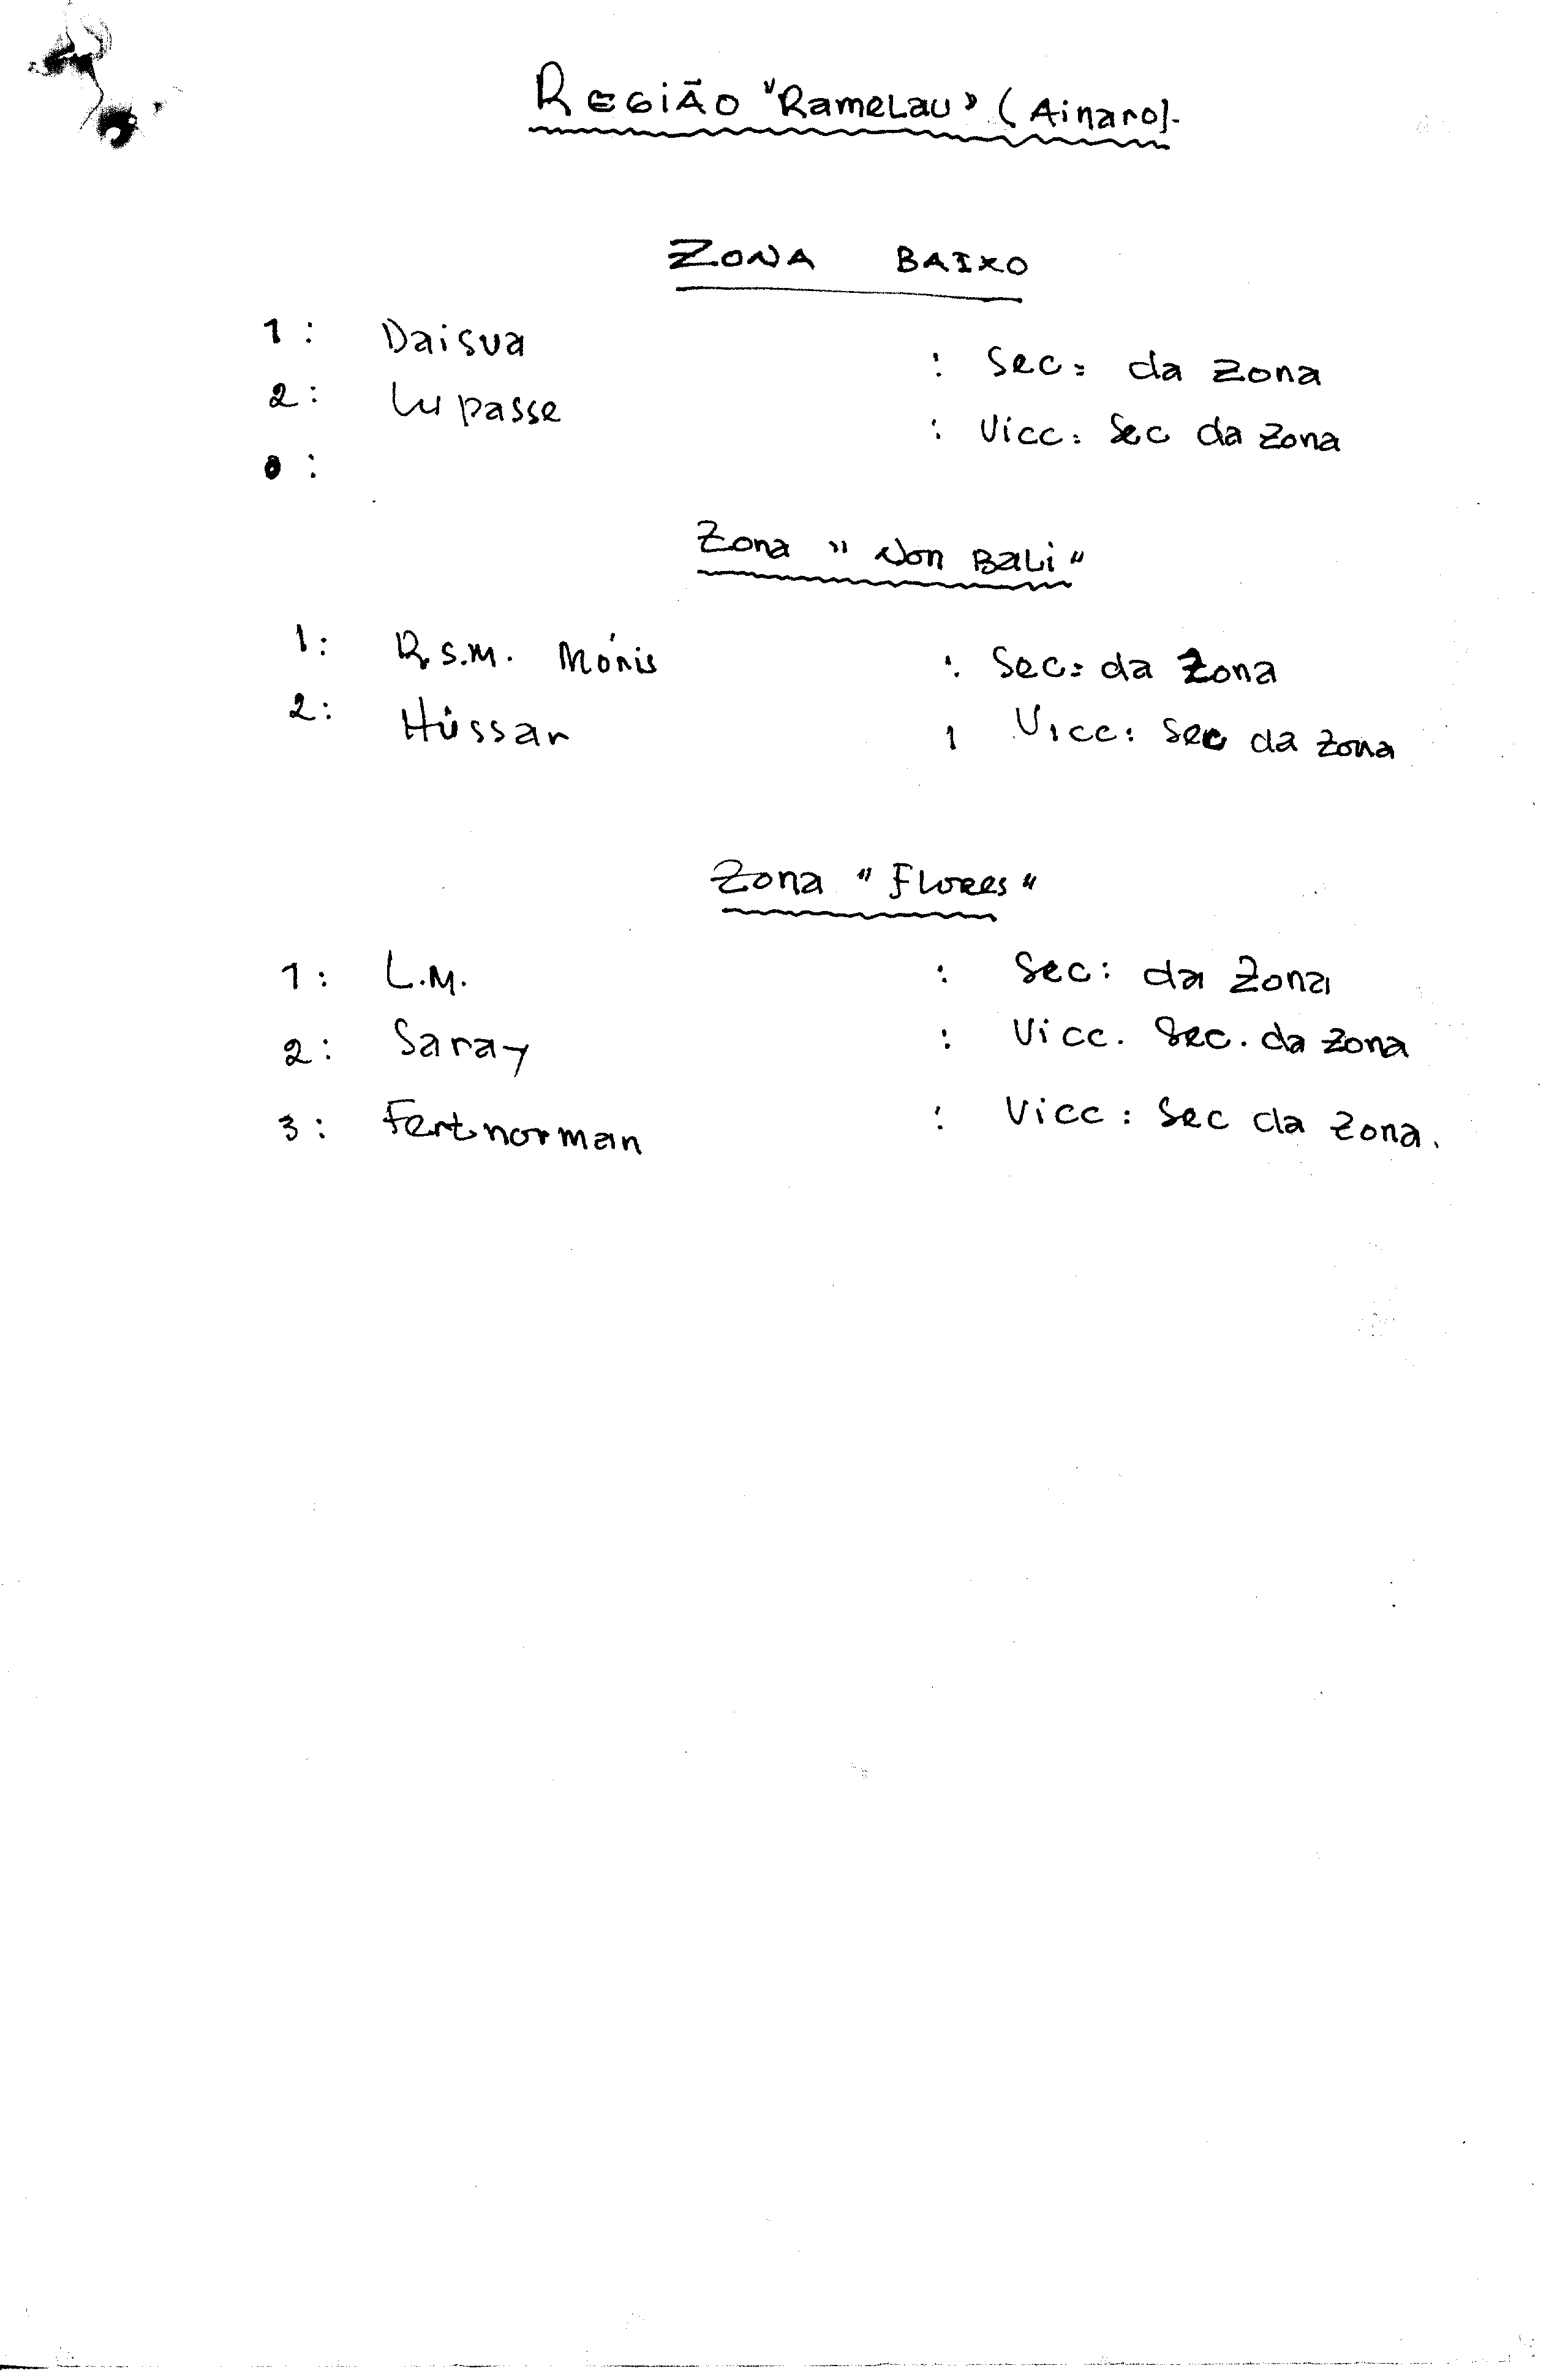 REGIÃO "RameLau" (Ainaro).
ZONA BAIXO
1: Daisua : Sec: da Zona
2: Lupasse : Vicc: Sec da Zona
0:
Zona "Non BaLi"
1: R.S.M. Mónis : Sec: da Zona
2: Hússar : Vicc: Sec da Zona
Zona "FLores"
1: L.M. : Sec: da Zona
2: Saray : Vicc. Sec. da Zona
3: Fertnorman : Vicc: Sec da Zona.